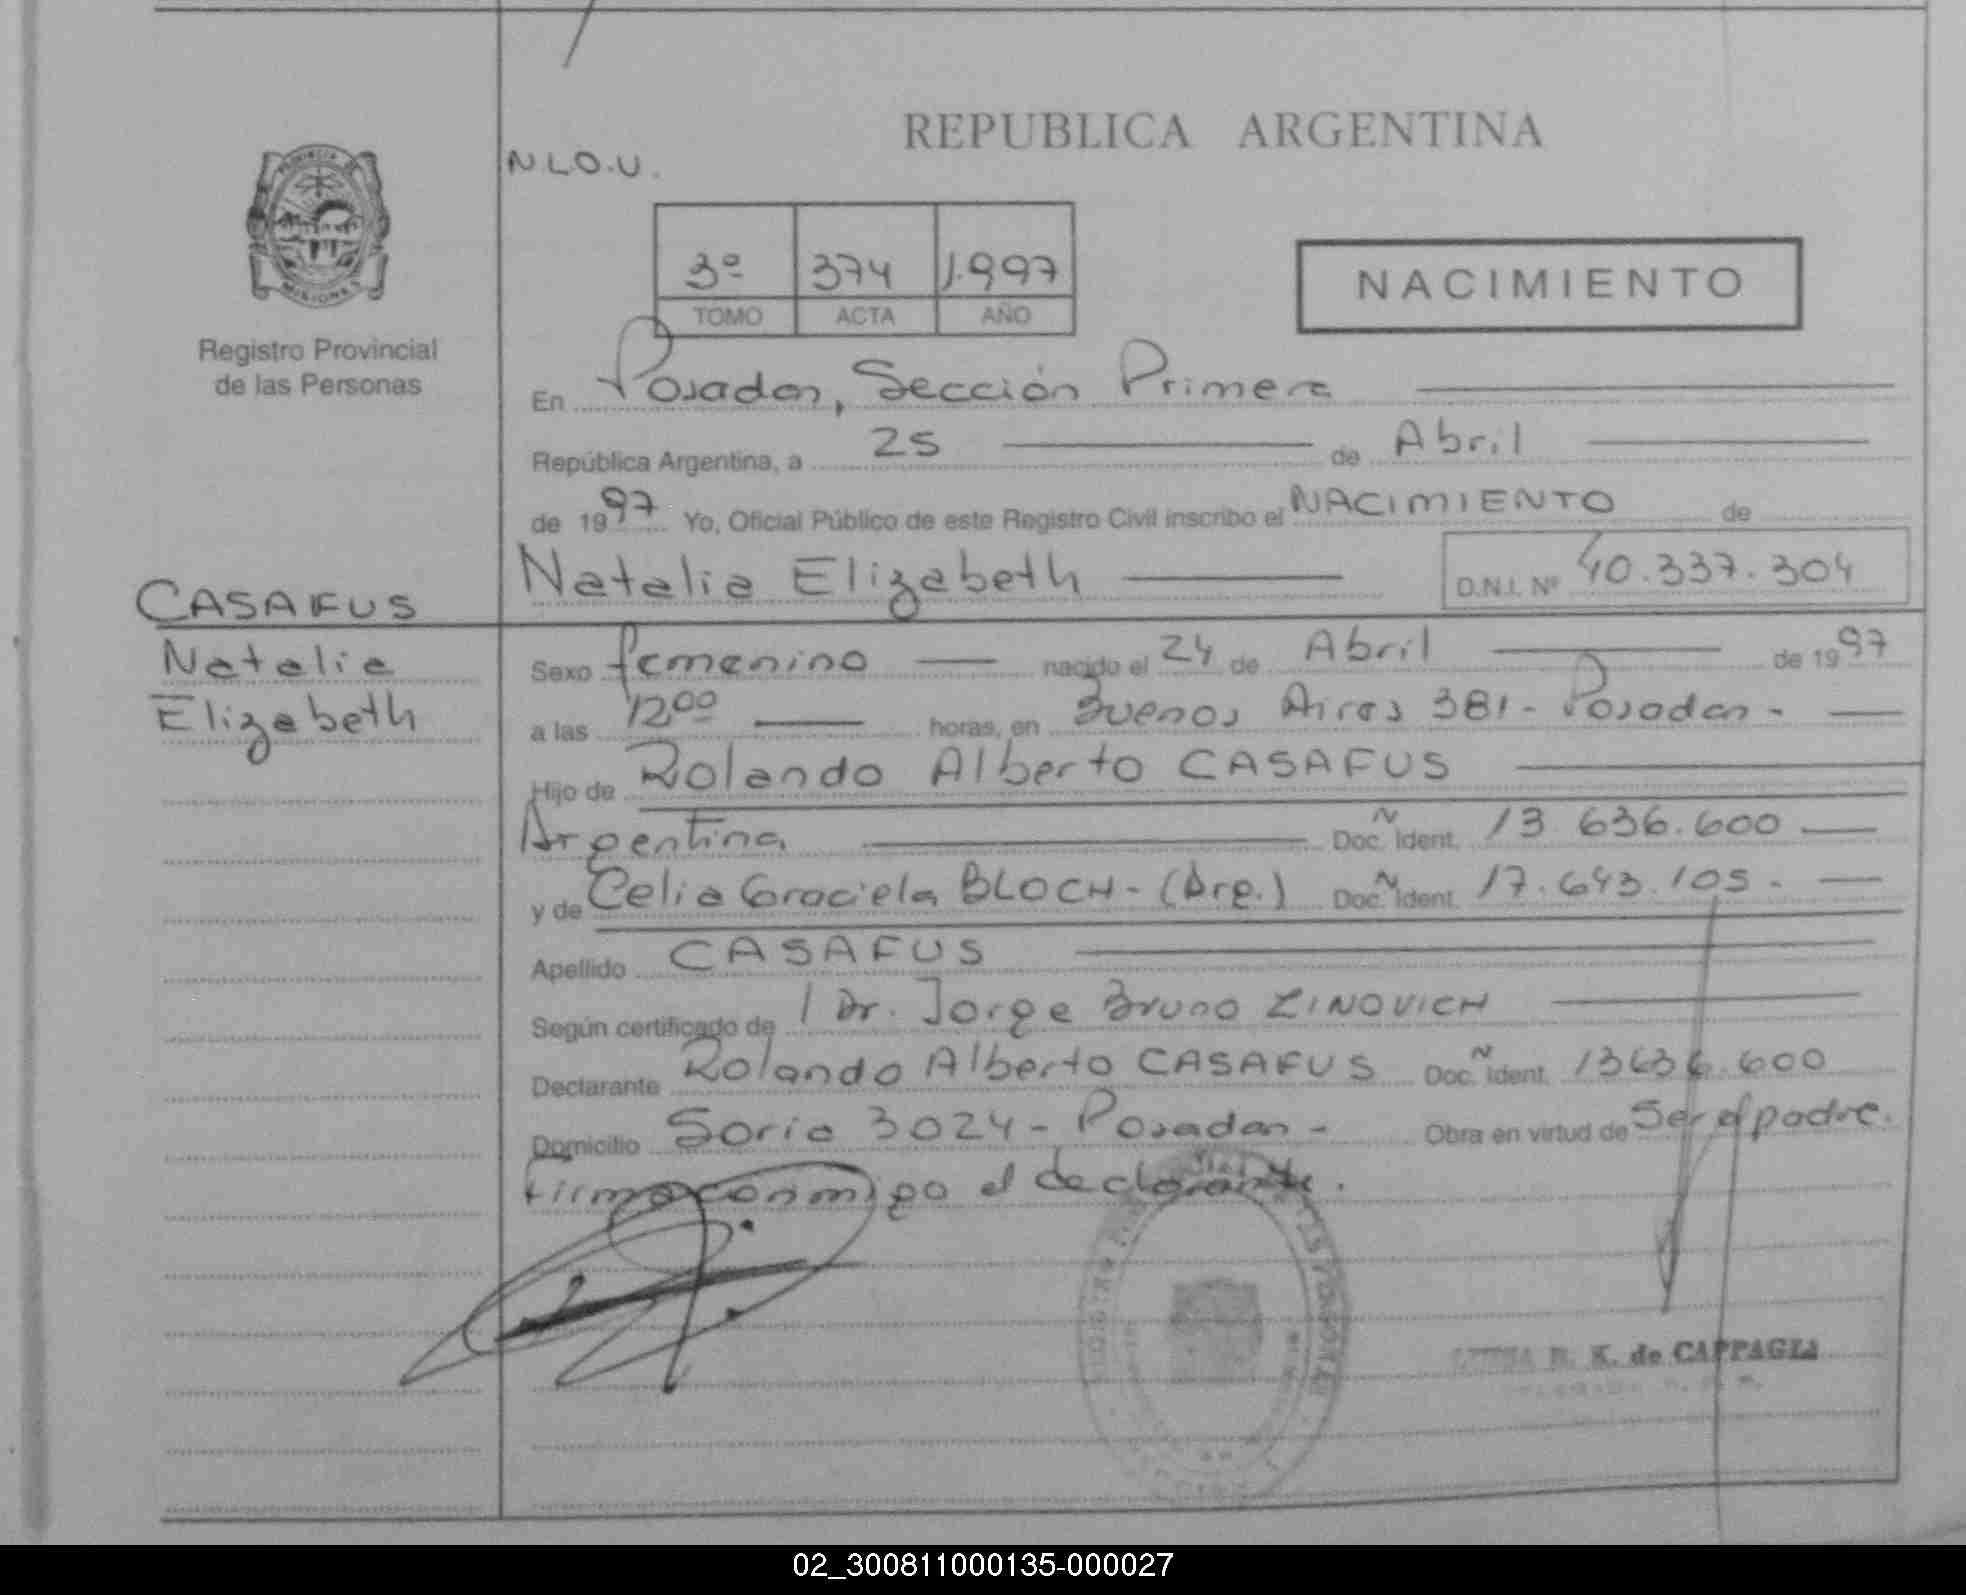 REPUBLICA ARGENTINA
PROVINCIA DE
MISIONES
N.L.O.U.
3º 374 1.997
TOMO ACTA AÑO
NACIMIENTO
Registro Provincial
de las Personas
En Posadas, Sección Primera
República Argentina, a 25 de Abril
de 1997 Yo, Oficial Público de este Registro Civil inscribo el NACIMIENTO de
Natalia Elizabeth D.N.I. Nº 40.337.304
CASAFUS
Natalia
Elizabeth
Sexo femenino nacido el 24 de Abril de 1997
a las 12,00 horas, en Buenos Aires 381 - Posadas -
Hijo de Rolando Alberto CASAFUS
Argentina Doc. Ident. 13.636.600
y de Celia Graciela BLOCH - (Arg.) Doc. Ident. 17.643.105.-
Apellido CASAFUS
Según certificado de Dr. Jorge Bruno ZINOVICH
Declarante Rolando Alberto CASAFUS Doc. Ident. 13636.600
Domicilio Soria 3024 - Posadas - Obra en virtud de Ser el padre.
Firma conmigo el declarante.
R. K. de CAPPAGLI
02_300811000135-000027